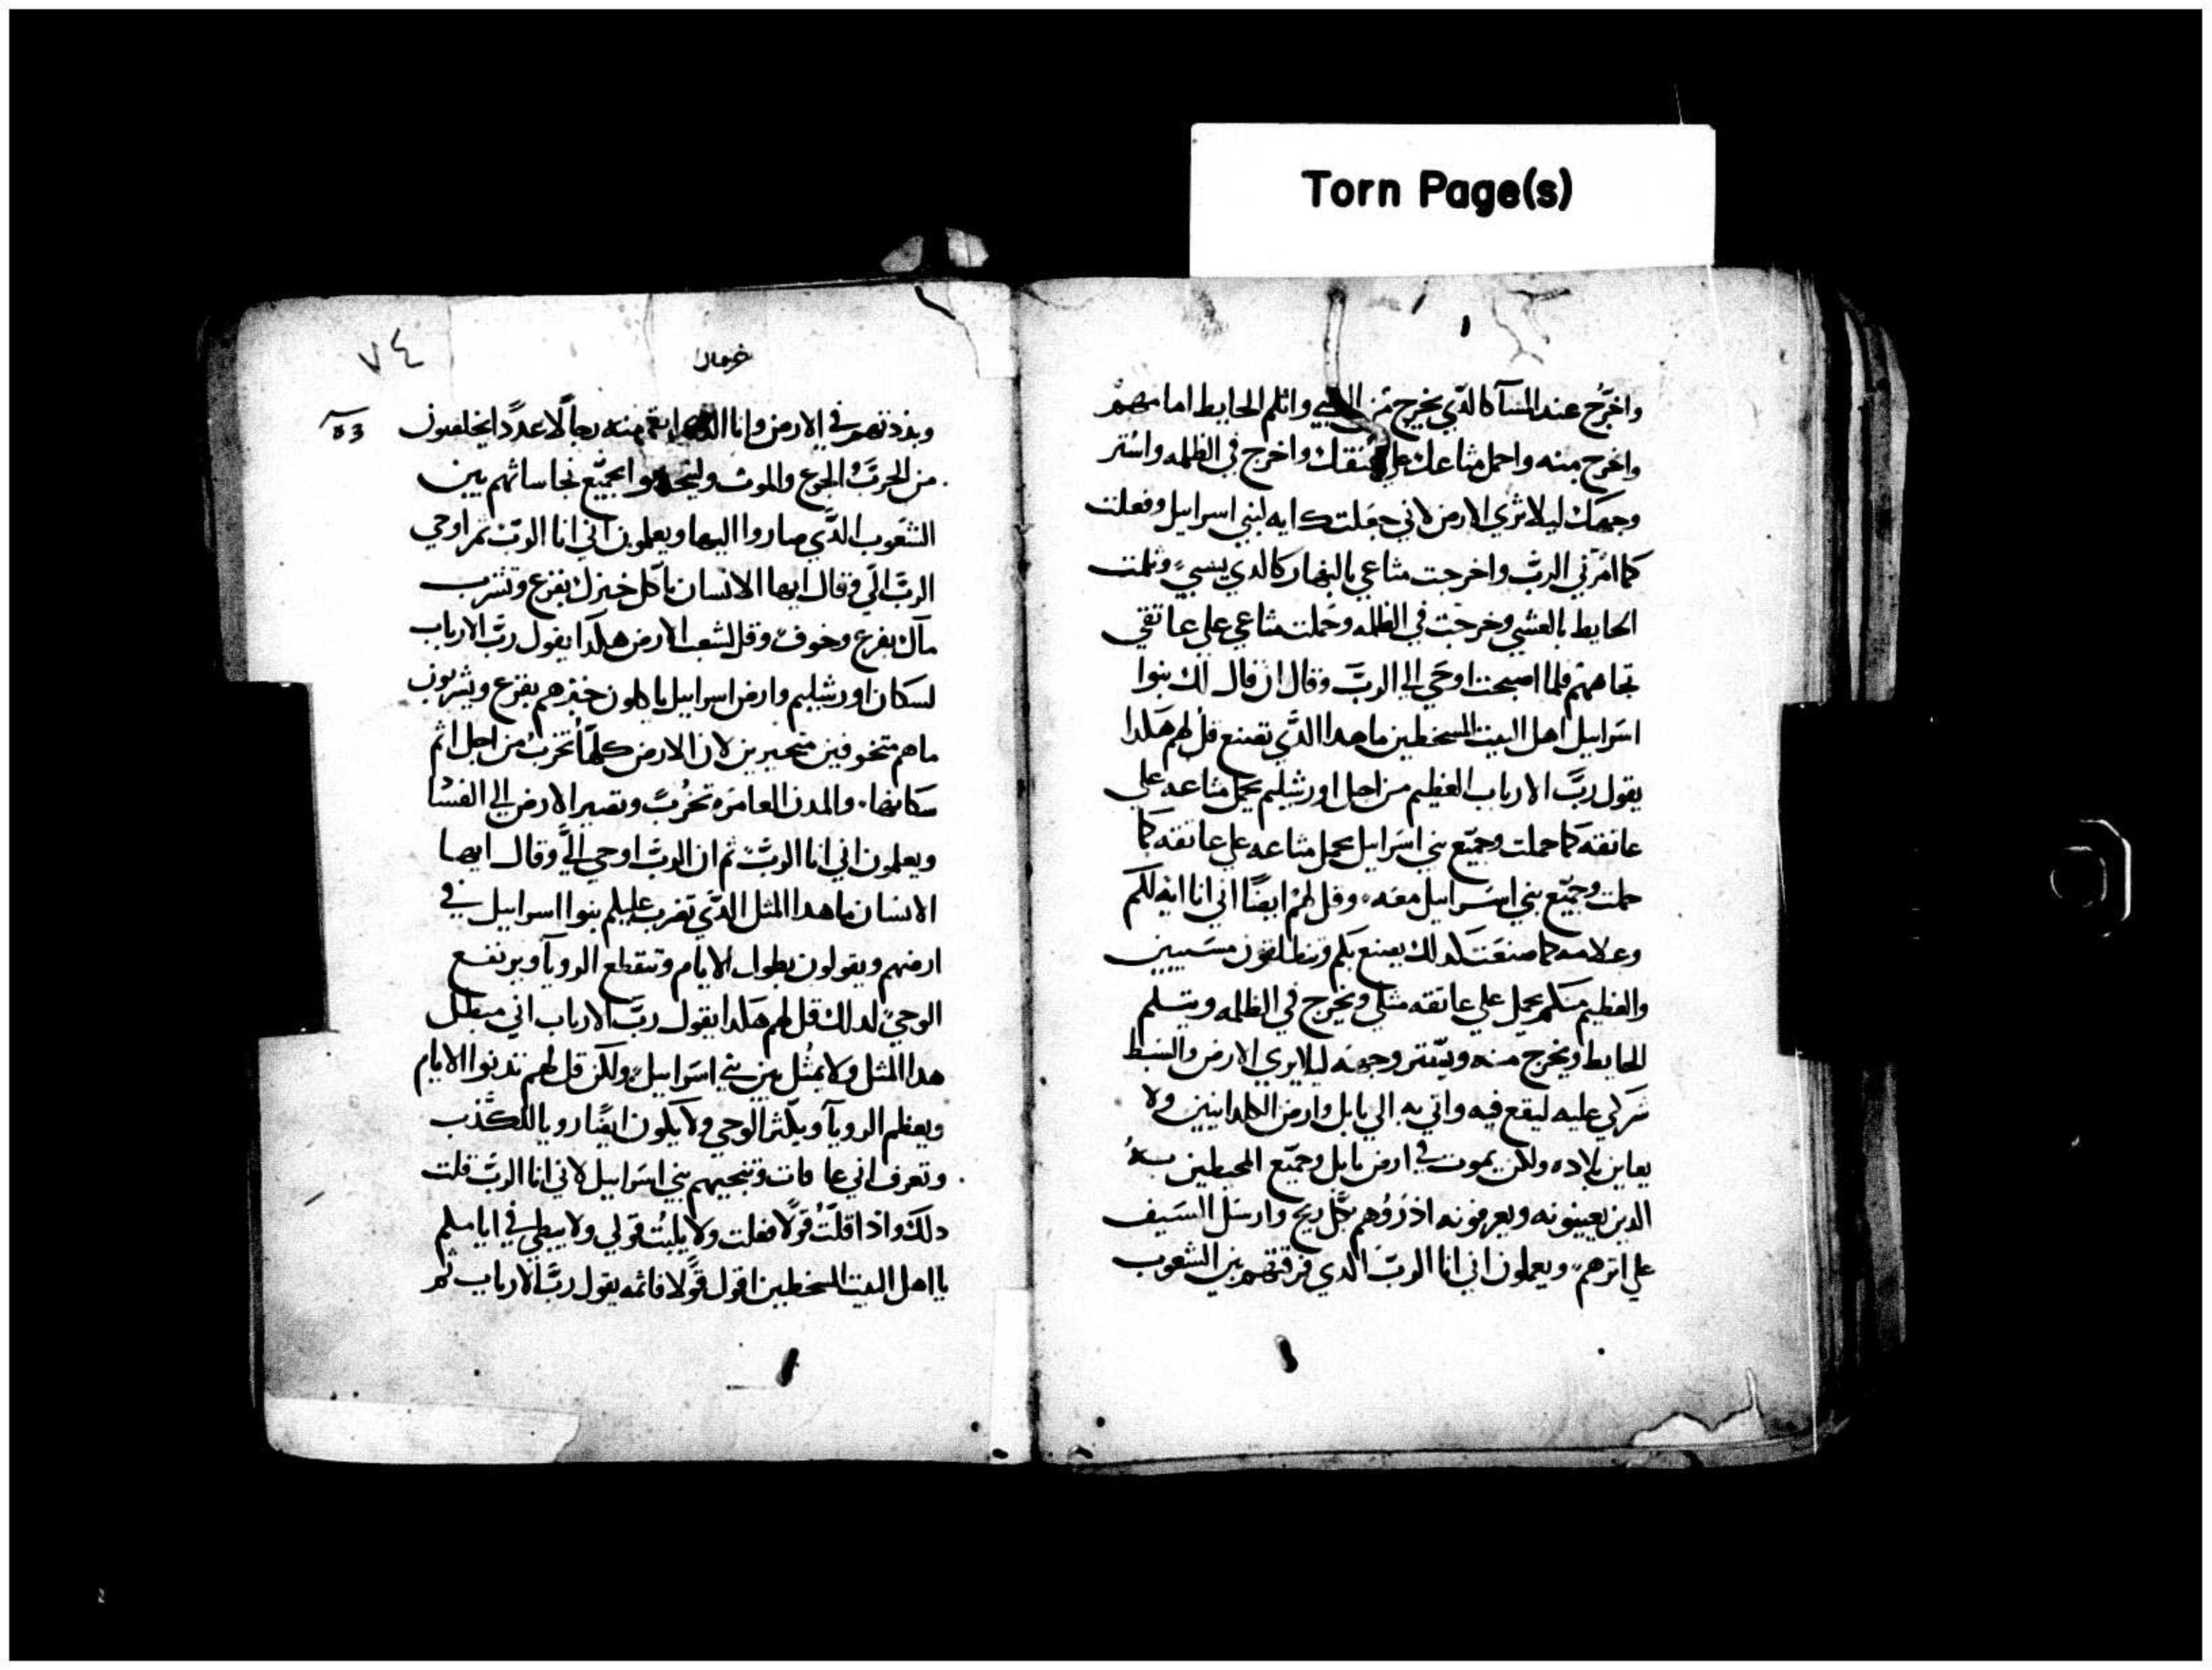 Torn Page(s)
واخرج عند المسا كالذي يخرج من السبي واثلم الحايط امامهم
واخرج منه واحمل متاعك علي عنقك واخرج في الظلمه واستر
وجهك ليلا تري الارض لاني جعلتك ايه لبني اسراييل وفعلت
كما امرني الرب واخرجت متاعي بالنهار كالدي يسبي وثلمت
الحايط بالعشي وخرجت في الظلمه وحملت متاعي علي عاتقي
تجاههم فلما اصبحت اوحي الي الرب وقال ان قال لك بنوا
اسراييل اهل البيت المسخطين ما هدا الذي تصنع قل لهم هكدا
يقول رب الارباب العظيم من اجل اورشليم يحمل متاعه علي
عاتقه كما حملت وجميع بني اسراييل يحمل متاعه علي عاتقه كما
حملت وجميع بني اسراييل معه وقل لهم ايضا اني انا ايه لكم
وعلامه كما صنعت كدلك يصنع بكم وتنطلقون مسبيين
والعظيم منكم يحمل علي عاتقه مثلي ويخرج في الظلمه ويتسلم
الحايط ويخرج منه ويستر وجهه ليلا يري الارض وابسط
شركي عليه ليقع فيه واتي به الي بابل وارض الكلدانيين ولا
يعاين بلاده ولكن يموت في ارض بابل وجميع المحيطين به
الدين يعينونه ويعرفونه اذروهم بكل ريح وارسل السيف
علي اثرهم ويعلمون اني انا الرب الدي فرقتهم بين الشعوب
٧٤
وبددتهم في الارض وانا ابقي منه رجالا عددا يخلصون
من الحرب الجوع والموت وليخبروا بجميع نجاساتهم بين
الشعوب الذي صاروا اليها ويعلمون اني انا الرب ثم اوحي
الرب الي وقال ايها الانسان تاكل خبزك بفزع وتشرب
ماك بفزع وخوف وقل لشعب الارض هكدا يقول رب الارباب
لسكان اورشليم وارض اسراييل ياكلون خبزهم بفزع ويشربون
ماهم متخوفين متحيرين لان الارض كلها تخرب من اجل اثم
سكانها والمدن العامره تخرب وتصير الارض الي الفسا
ويعلمون اني انا الرب ثم ان الرب اوحي الي وقال ايها
الانسان ما هدا المثل الذي تضرب عليكم بنوا اسراييل في
ارضهم ويقولون بطول الايام وتنقطع الرويا ويرتفع
الوحي لدلك قل لهم هكدا يقول رب الارباب اني مبطل
هدا المثل ولا يمثل بين بني اسراييل ولكن قل لهم تدنوا الايام
ويعظم الرويا ويكثر الوحي ولا يكون ايضا رويا للكذب
وتعرف اني بني اسراييل لاني انا الرب قلت
دلك واذا قلت قولا فعلت ولا يلبث قولي ولا يبطي في ايامكم
يا اهل البيت المسخطين اقول قولا فاتمه يقول رب الارباب ثم